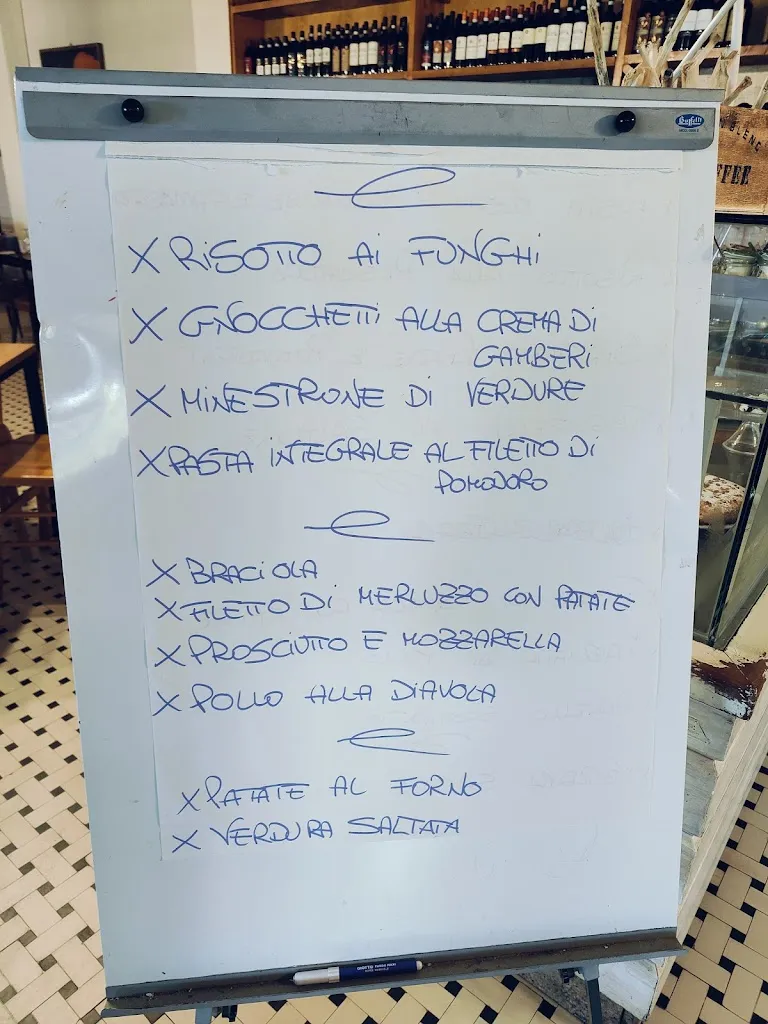 X RISOTTO AI FUNGHI
X GNOCCHETTI ALLA CREMA DI
GAMBERI
X MINESTRONE DI VERDURE
X PASTA INTEGRALE AL FILETTO DI
POMODORO
X BRACIOLA
X FILETTO DI MERLUZZO CON PATATE
X PROSCIUTTO E MOZZARELLA
X POLLO ALLA DIAVOLA
X PATATE AL FORNO
X VERDURA SALTATA